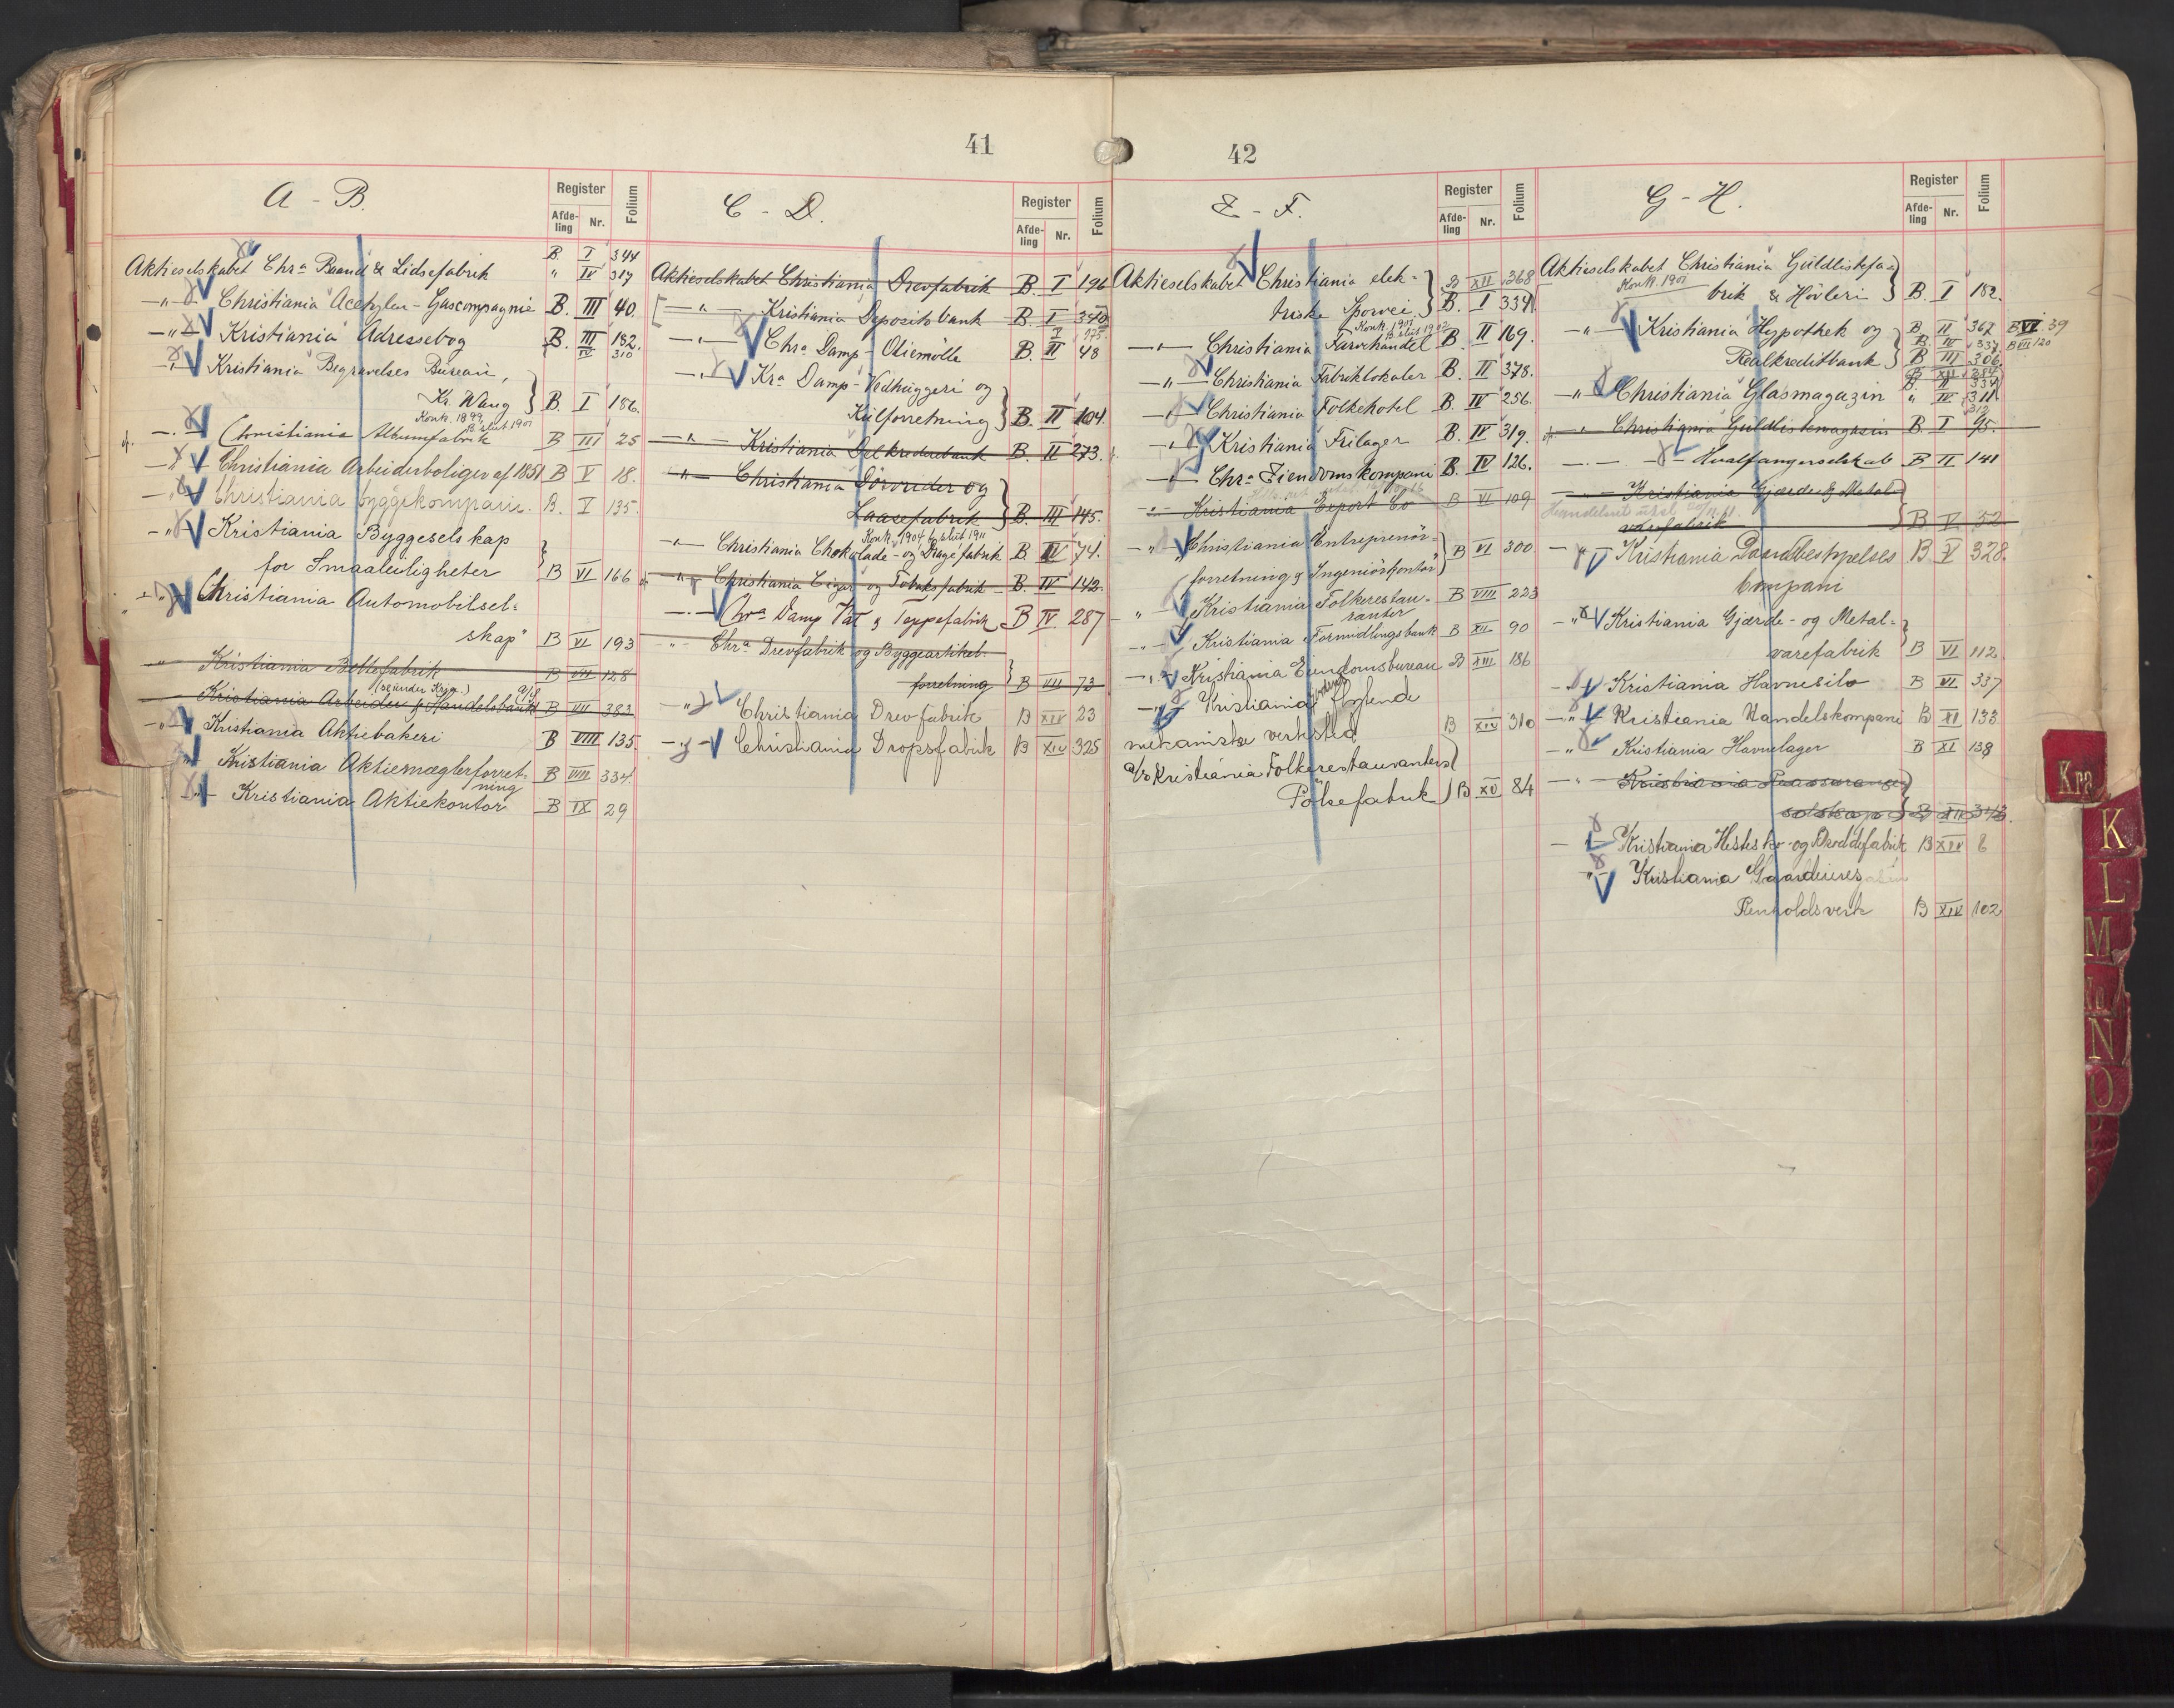 41
A - B.
Register
Afde-
ling
Nr.
Folium
Aktieselskabet Chra Baand & Lidsefabrik B. I 344
" IV 317
—"— Christiania Acetylen - Gascompagnie B. III 40.
—"— Kristiania Adressebog B. III 182.
IV 310
—"— Kristiania Begravelses Büreau,
Kr. Wang } B. I 186.
Konk. 1899, B slut 1901
—"— Christiania Albumfabrik B III 25
—"— Christiania Arbeiderboliger af 1851 B V 18.
—"— Christiania byggekompani. B. V 135.
—"— Kristiania Byggeselskap
for Smaaleiligheter } B VI 166
—"— Christiania Automobilsel=
skap" B VI 193
—"— Kristiania Beltefabrik B VII 128
(se under Krja.)
—"— Kristiania Arbeider & Handelsbank B VII 383
—"— Kristiania Aktiebakeri B VIII 135.
—"— Kristiania Aktiemæglerforret-
ning B VIII 334
—"— Kristiania Aktiekontor B IX 29
C - D.
Register
Afde-
ling
Nr.
Folium
Aktieselskabet Christiania Drevfabrik B. I 196
—"— Kristiania Depositobank B. I 370
—"— Chra Damp - Oliemölle B. II 48
—"— Kra Damp - Vedhuggeri og
Kulforretning } B. II 104.
—"— Kristiania Delkrederebank B. II 273.
—"— Christiania Dörvrider og
Laasefabrik } B. III 145.
Konk. 1904 B slut 1911
—"— Christiania Chokolade - og Dragéfabrik B IV 74.
—"— Christiania Cigar og Tobaksfabrik B. IV 142.
—"— Chra Damp Vat & Teppefabrik B IV 287
—"— Chra Drevfabrik og Byggeartikel-
forretning } B VIII 73
—"— Christiania Drevfabrik B XIV 23
—"— Christiania Dropsfabrik B XIV 325
42
E - F.
Register
Afde-
ling
Nr.
Folium
Aktieselskabet Christiania elek- B XII 368
triske Sporvei. } B. I 334.
Konk. 1901 B slut 1902
—"— Christiania Farvehandel B. II 169.
—"— Christiania Fabriklokaler B. II 378.
—"— Christiania Folkehotel B. IV 256.
—"— Kristiania Frilager B. IV 319.
—"— Chra Eiendomskompani B. IV 126.
—"— Kristiania Export Co B VI 109
—"— Christiania Entreprenör-
forretning & Ingeniörkontor } B VI 300
—"— Kristiania Folkerestau- B VIII 223
ranter
—"— Kristiania Formidlingsbank B XII 90
—"— Kristiania Eiendomsbureau B XIII 186
—"— Kristiania flytende
mekaniske verksted B XIV 310
A/S Kristiania Folkerestauranters
Pölsefabrik } B XV 84
G - H.
Register
Afde-
ling
Nr.
Folium
Aktieselskabet Christiania Guldlistefa=
Konk. 1901
brik & Hövleri } B. I 182.
—"— Kristiania Hypothek og B. II 367 B VI 39
B. IV 337 B VII 120
Realkreditbank } B III 306
B XII 284
—"— Christiania Glasmagazin B. II 334
" IV 311
—"— Christiania Guldlistemagasin B. I 95.
—"— Hvalfangerselskab B II 141
—"— Kristiania Gjærde & Metal-
varefabrik } B V 52
—"— Kristiania B V 328.
Compani
—"— Kristiania Gjærde - og Metal-
varefabrik } B VI 112
—"— Kristiania Havnesilo B VI 337
—"— Kristiania Handelskompani B XI 133
—"— Kristiania Havnelager B XI 138
—"— Kristiania
selskap } B XII 313.
—"— Kristiania Hestesko- og Broddefabrik B XIV 6
—"— Kristiania Gaardeieres
Renholdsverk B XIV 102
Kra
K
L
M
N
O